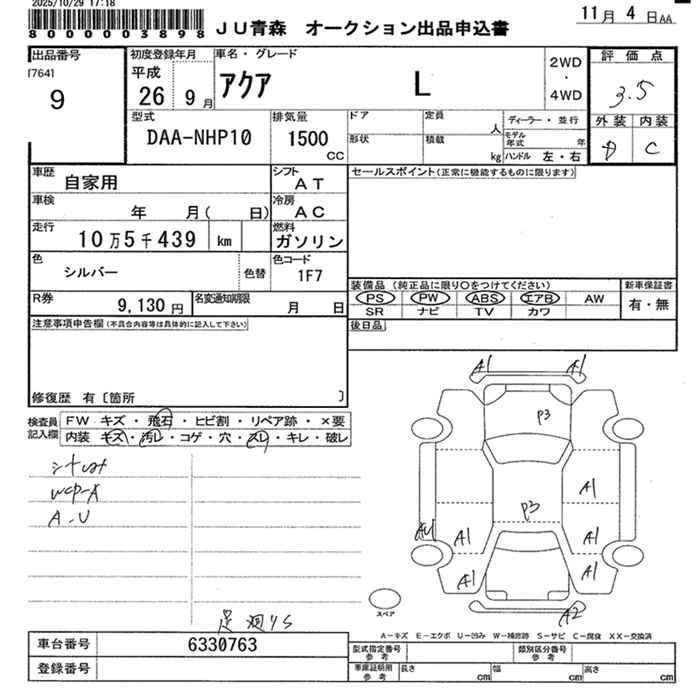 2025/10/29 17:18
80000003898
JU青森 オークション出品申込書
11月 4日AA
出品番号
[764]
9
初度登録年月
平成
26 9月
車名・グレード
アクア L
2WD
・
4WD
評価点
3.5
外装 内装
D C
型式
DAA-NHP10
排気量
1500
CC
ドア
定員
人
形状
積載
kg
ディーラー・並行
モデル年式 年
ハンドル 左・右
車歴
自家用
シフト
AT
車検
年 月( 日)
冷房
AC
走行
10万5千439 km
燃料
ガソリン
色
シルバー
色替
色コード
1F7
R券
9,130円
名変通知期限
月 日
セールスポイント(正常に機能するものに限ります)
装備品 (純正品に限り○をつけてください)
新車保証書
PS PW ABS エアB AW
有・無
SR ナビ TV カワ
後日品
注意事項申告欄(不具合内容等は具体的に記入して下さい)
修復歴 有〔箇所 〕
検査員記入欄
FW キズ・飛石・ヒビ割・リペア跡・×要
内装 キズ・汚レ・コゲ・穴・スレ・キレ・破レ
A-U
A1 A1
P3
P3
A1
A1 A1
A1 A1
A2
スペア
A-キズ E-エクボ U-凹み W-補修跡 S-サビ C-腐食 XX-交換済
車台番号
6330763
登録番号
型式指定番号
参考
類別区分番号
参考
車庫証明用
参考
長さ cm
幅 cm
高さ cm